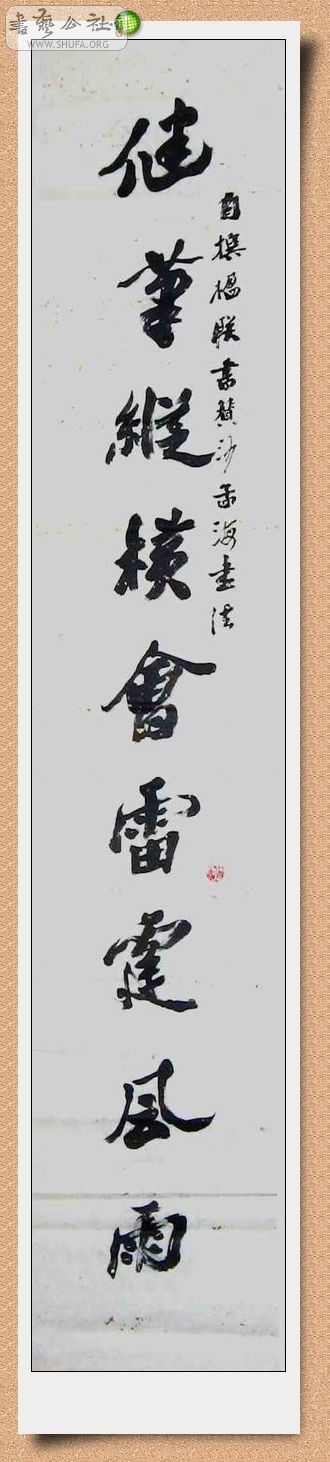 書藝公社
WWW.SHUFA.ORG
自撰楹联書贊沙孟海書法
健筆縱横會雷霆風雨